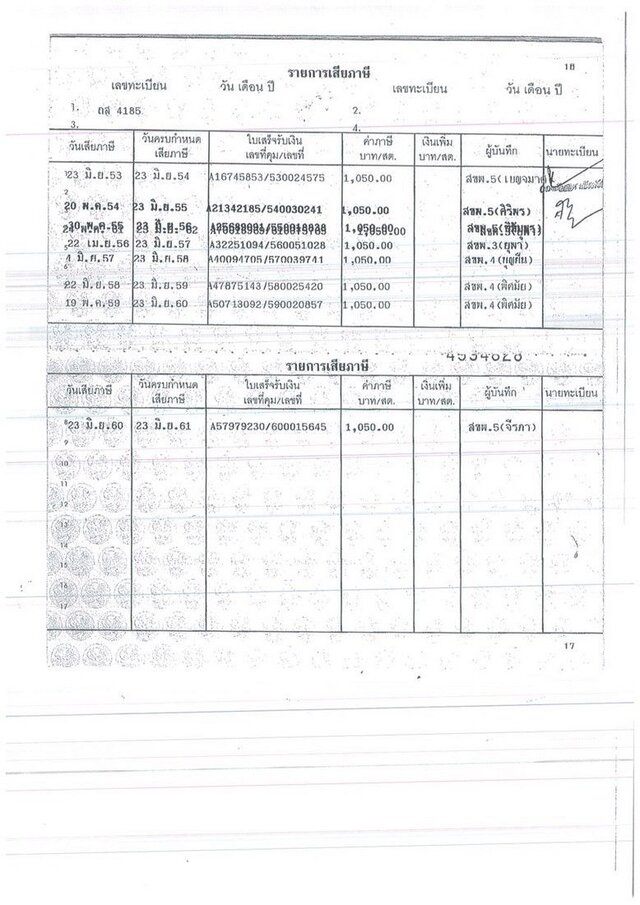 18
รายการเสียภาษี
เลขทะเบียน วัน เดือน ปี เลขทะเบียน วัน เดือน ปี
1. ถส 4185 2.
3. 4.
วันเสียภาษี วันครบกำหนดเสียภาษี ใบเสร็จรับเงิน เลขที่คุม/เลขที่ ค่าภาษี บาท/สต. เงินเพิ่ม บาท/สต. ผู้บันทึก นายทะเบียน
23 มิ.ย.53 23 มิ.ย.54 A16745853/530024575 1,050.00 สขพ.5(เบญจมาศ)
2
20 พ.ค.54 23 มิ.ย.55 A21342185/540030241 1,050.00 สขพ.5(ศิริพร)
22 เม.ย.56 23 มิ.ย.57 A32251094/560051028 1,050.00 สขพ.3(ยุพา)
4 มิ.ย.57 23 มิ.ย.58 A40094705/570039741 1,050.00 สขพ.4(บุญยืน)
6
22 มิ.ย.58 23 มิ.ย.59 A47875143/580025420 1,050.00 สขพ.4(พิศมัย)
19 พ.ค.59 23 มิ.ย.60 A50713092/590020857 1,050.00 สขพ.4(พิศมัย)
4934628
รายการเสียภาษี
วันเสียภาษี วันครบกำหนดเสียภาษี ใบเสร็จรับเงิน เลขที่คุม/เลขที่ ค่าภาษี บาท/สต. เงินเพิ่ม บาท/สต. ผู้บันทึก นายทะเบียน
8 23 มิ.ย.60 23 มิ.ย.61 A57979230/600015645 1,050.00 สขพ.5(จีรภา)
9
10
11
12
13
14
15
16
17
17